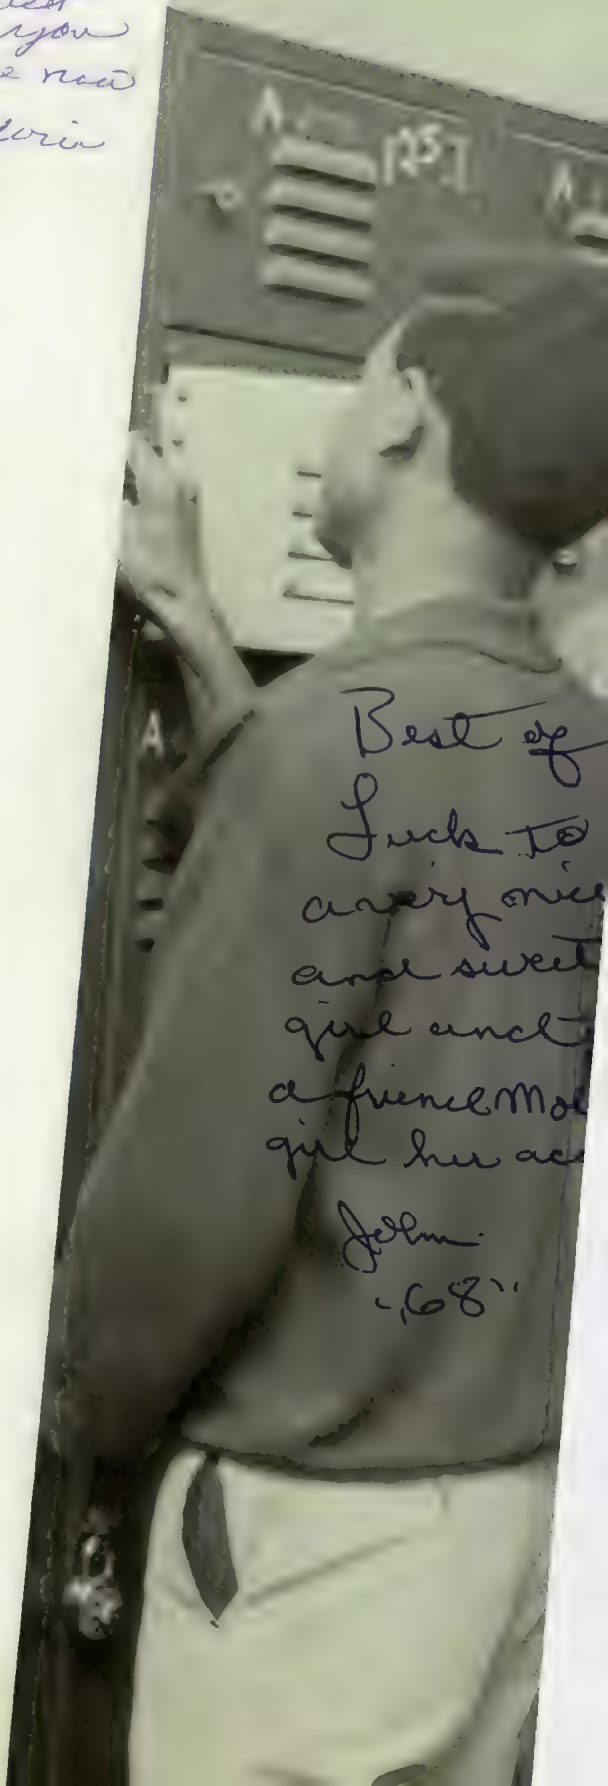 you
A
25
A
A
Best of
Luck to
a very nice
and sweet
girl and
a friend
girl her
John
"68"